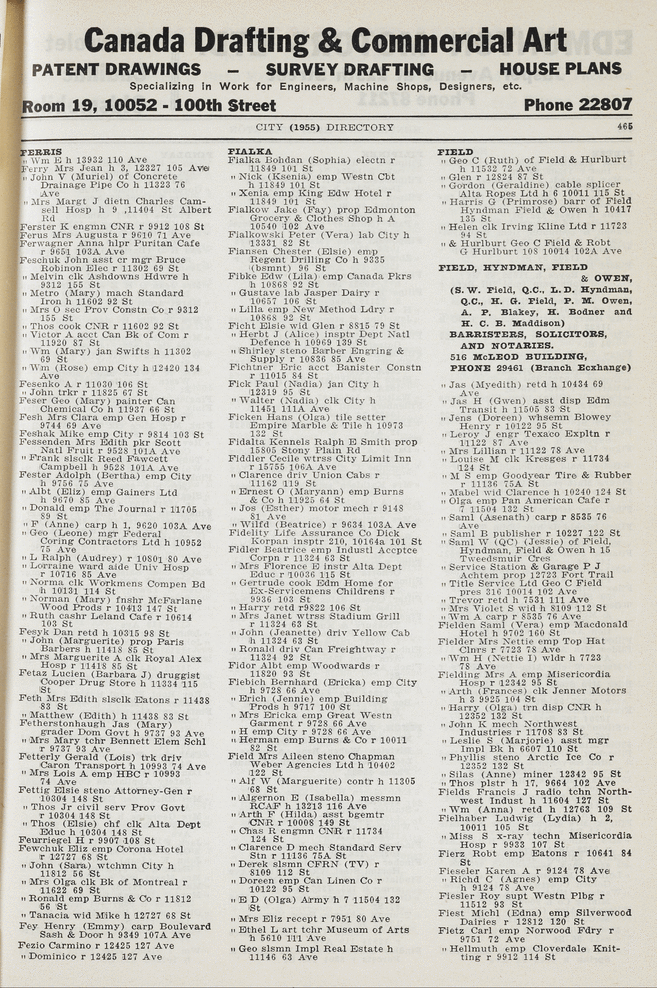 Canada Drafting & Commercial Art
PATENT DRAWINGS — SURVEY DRAFTING — HOUSE PLANS
Specializing in Work for Engineers, Machine Shops, Designers, etc.
Room 19, 10052 - 100th Street Phone 22807
CITY (1955) DIRECTORY 465
FERRIS
" Wm E h 13932 110 Ave
Ferry Mrs Jean h 3, 12327 105 Ave
" John V (Muriel) of Concrete
Drainage Pipe Co h 11323 76
Ave
" Mrs Margt J dietn Charles Cam-
sell Hosp h 9 ,11404 St Albert
Rd
Ferster K engmn CNR r 9912 108 St
Ferus Mrs Augusta r 9610 71 Ave
Ferwagner Anna hlpr Puritan Cafe
r 9651 103A Ave
Feschuk John asst cr mgr Bruce
Robinson Elec r 11302 69 St
" Melvin clk Ashdowns Hdwre h
9312 155 St
" Metro (Mary) mach Standard
Iron h 11602 92 St
" Mrs O sec Prov Constn Co r 9312
155 St
" Thos cook CNR r 11602 92 St
" Victor A acct Can Bk of Com r
11920 87 St
" Wm (Mary) jan Swifts h 11302
69 St
" Wm (Rose) emp City h 12420 134
Ave
Fesenko A r 11030 106 St
" John trkr r 11825 67 St
Feser Geo (Mary) painter Can
Chemical Co h 11937 66 St
Fesh Mrs Clara emp Gen Hosp r
9744 69 Ave
Feshak Mike emp City r 9814 103 St
Fessenden Mrs Edith pkr Scott
Natl Fruit r 9528 101A Ave
" Frank slsclk Reed Fawcett
Campbell h 9528 101A Ave
Fester Adolph (Bertha) emp City
h 9756 75 Ave
" Albt (Eliz) emp Gainers Ltd
h 9670 85 Ave
" Donald emp The Journal r 11705
89 St
" F (Anne) carp h 1, 9620 103A Ave
" Geo (Leone) mgr Federal
Coring Contractors Ltd h 10952
75 Ave
" L Ralph (Audrey) r 10801 80 Ave
" Lorraine ward aide Univ Hosp
r 10716 85 Ave
" Norma clk Workmens Compen Bd
h 10131 114 St
" Norman (Mary) fnshr McFarlane
Wood Prods r 10413 147 St
" Ruth cashr Leland Cafe r 10614
103 St
Fesyk Dan retd h 10315 98 St
" John (Marguerite) prop Paris
Barbers h 11418 85 St
" Mrs Marguerite A clk Royal Alex
Hosp r 11418 85 St
Fetaz Lucien (Barbara J) druggist
Cooper Drug Store h 11334 115
St
Feth Mrs Edith slsclk Eatons r 11438
83 St
" Matthew (Edith) h 11438 83 St
Fetherstonhaugh Jas (Mary)
grader Dom Govt h 9737 93 Ave
" Mrs Mary tchr Bennett Elem Schl
r 9737 93 Ave
Fetterly Gerald (Lois) trk driv
Caron Transport h 10993 74 Ave
" Mrs Lois A emp HBC r 10993
74 Ave
Fettig Elsie steno Attorney-Gen r
10304 148 St
" Thos Jr civil serv Prov Govt
r 10304 148 St
" Thos (Elsie) chf clk Alta Dept
Educ h 10304 148 St
Feurriegel H r 9907 108 St
Fewchuk Eliz emp Corona Hotel
r 12727 68 St
" John (Sara) wtchmn City h
11812 56 St
" Mrs Olga clk Bk of Montreal r
11622 69 St
" Ronald emp Burns & Co r 11812
56 St
" Tanacia wid Mike h 12727 68 St
Fey Henry (Emmy) carp Boulevard
Sash & Door h 9349 107A Ave
Fezio Carmino r 12425 127 Ave
" Dominico r 12425 127 Ave
FIALKA
Fialka Bohdan (Sophia) electn r
11849 101 St
" Nick (Ksenia) emp Westn Cbt
h 11849 101 St
" Xenia emp King Edw Hotel r
11849 101 St
Fialkow Jake (Fay) prop Edmonton
Grocery & Clothes Shop h A
10540 102 Ave
Fialkowski Peter (Vera) lab City h
13331 82 St
Fiansen Chester (Elsie) emp
Regent Drilling Co h 9335
(bsmnt) 96 St
Fibke Edw (Lila) emp Canada Pkrs
h 10868 92 St
" Gustave lab Jasper Dairy r
10657 106 St
" Lilla emp New Method Ldry r
10868 92 St
Ficht Elsie wid Glen r 8815 79 St
" Herbt J (Alice) insptr Dept Natl
Defence h 10969 139 St
" Shirley steno Barber Engring &
Supply r 10836 85 Ave
Fichtner Eric acct Banister Constn
r 11015 84 St
Fick Paul (Nadia) jan City h
12319 95 St
" Walter (Nadia) clk City h
11451 111A Ave
Ficken Hans (Olga) tile setter
Empire Marble & Tile h 10973
132 St
Fidalta Kennels Ralph E Smith prop
15805 Stony Plain Rd
Fiddler Cecile wtrss City Limit Inn
r 15755 106A Ave
" Clarence driv Union Cabs r
11162 119 St
" Ernest O (Maryann) emp Burns
& Co h 11925 64 St
" Jos (Esther) motor mech r 9148
81 Ave
" Wilfd (Beatrice) r 9634 103A Ave
Fidelity Life Assurance Co Dick
Korpan insptr 210, 10164a 101 St
Fidler Beatrice emp Industl Accptce
Corp r 11324 63 St
" Mrs Florence E instr Alta Dept
Educ r 10036 115 St
" Gertrude cook Edm Home for
Ex-Servicemens Childrens r
9936 103 St
" Harry retd r9822 106 St
" Mrs Janet wtrss Stadium Grill
r 11324 63 St
" John (Jeanette) driv Yellow Cab
h 11324 63 St
" Ronald driv Can Freightway r
11324 92 St
Fidor Albt emp Woodwards r
11820 93 St
Fiebich Bernhard (Ericka) emp City
h 9728 66 Ave
" Erich (Jennie) emp Building
Prods h 9717 100 St
" Mrs Ericka emp Great Westn
Garment r 9728 66 Ave
" H emp City r 9728 66 Ave
" Herman emp Burns & Co r 10011
82 St
Field Mrs Aileen steno Chapman
Weber Agencies Ltd h 10402
122 St
" Alf W (Marguerite) contr h 11305
68 St
" Algernon E (Isabella) messmn
RCAF h 13213 116 Ave
" Arth F (Hilda) asst bgemtr
CNR r 10008 149 St
" Chas R engmn CNR r 11734
124 St
" Clarence D mech Standard Serv
Stn r 11136 75A St
" Derek slsmn CFRN (TV) r
8109 112 St
" Doreen emp Can Linen Co r
10122 95 St
" E D (Olga) Army h 7 11504 132
St
" Mrs Eliz recept r 7951 80 Ave
" Ethel L art tchr Museum of Arts
h 5610 111 Ave
" Geo slsmn Impl Real Estate h
11146 63 Ave
FIELD
" Geo C (Ruth) of Field & Hurlburt
h 11532 72 Ave
" Glen r 12824 87 St
" Gordon (Geraldine) cable splicer
Alta Ropes Ltd h 6 10011 115 St
" Harris G (Primrose) barr of Field
Hyndman Field & Owen h 10417
135 St
" Helen clk Irving Kline Ltd r 11723
94 St
" & Hurlburt Geo C Field & Robt
G Hurlburt 108 10014 102A Ave
FIELD, HYNDMAN, FIELD
& OWEN,
(S. W. Field, Q.C., L.D. Hyndman,
Q.C., H. G. Field, P. M. Owen,
A. P. Blakey, H. Bodner and
H. C. B. Maddison)
BARRISTERS, SOLICITORS,
AND NOTARIES.
516 McLEOD BUILDING,
PHONE 29461 (Branch Ecxhange)
" Jas (Myedith) retd h 10434 69
Ave
" Jas H (Gwen) asst disp Edm
Transit h 11505 83 St
" Jens (Doreen) whsemn Blowey
Henry r 10122 95 St
" Leroy J engr Texaco Expltn r
11122 87 Ave
" Mrs Lillian r 11122 78 Ave
" Louise M clk Kresges r 11734
124 St
" M S emp Goodyear Tire & Rubber
r 11136 75A St
" Mabel wid Clarence h 10240 124 St
" Olga emp Pan American Cafe r
7 11504 132 St
" Saml (Asenath) carp r 8535 76
Ave
" Saml B publisher r 10227 122 St
" Saml W (QC) (Jessie) of Field,
Hyndman, Field & Owen h 15
Tweedsmuir Cres
" Service Station & Garage P J
Achtem prop 12723 Fort Trail
" Title Service Ltd Geo C Field
pres 316 10014 102 Ave
" Trevor retd h 7531 111 Ave
" Mrs Violet S wid h 8109 112 St
" Wm A carp r 8535 76 Ave
Fielden Saml (Vera) emp Macdonald
Hotel h 9702 160 St
Fielder Mrs Nettie emp Top Hat
Clnrs r 7723 78 Ave
" Wm H (Nettie I) wldr h 7723
78 Ave
Fielding Mrs A emp Misericordia
Hosp r 12342 95 St
" Arth (Frances) clk Jenner Motors
h 3 9925 104 St
" Harry (Olga) trn disp CNR h
12352 132 St
" John K mech Northwest
Industries r 11708 83 St
" Leslie S (Marjorie) asst mgr
Impl Bk h 6607 110 St
" Phyllis steno Arctic Ice Co r
12352 132 St
" Silas (Anne) miner 12342 95 St
" Thos plstr h 17, 9664 102 Ave
Fields Francis J radio tchn North-
west Indust h 11604 127 St
" Wm (Anna) retd h 12763 109 St
Fielhaber Ludwig (Lydia) h 2,
10011 105 St
" Miss S x-ray techn Misericordia
Hosp r 9933 107 St
Fierz Robt emp Eatons r 10641 84
St
Fieseler Karen A r 9124 78 Ave
" Richd C (Agnes) emp City
h 9124 78 Ave
Fiesler Roy supt Westn Plbg r
11512 93 St
Fiest Michl (Edna) emp Silverwood
Dairies r 12812 120 St
Fietz Carl emp Norwood Fdry r
9751 72 Ave
" Hellmuth emp Cloverdale Knit-
ting r 9912 114 St